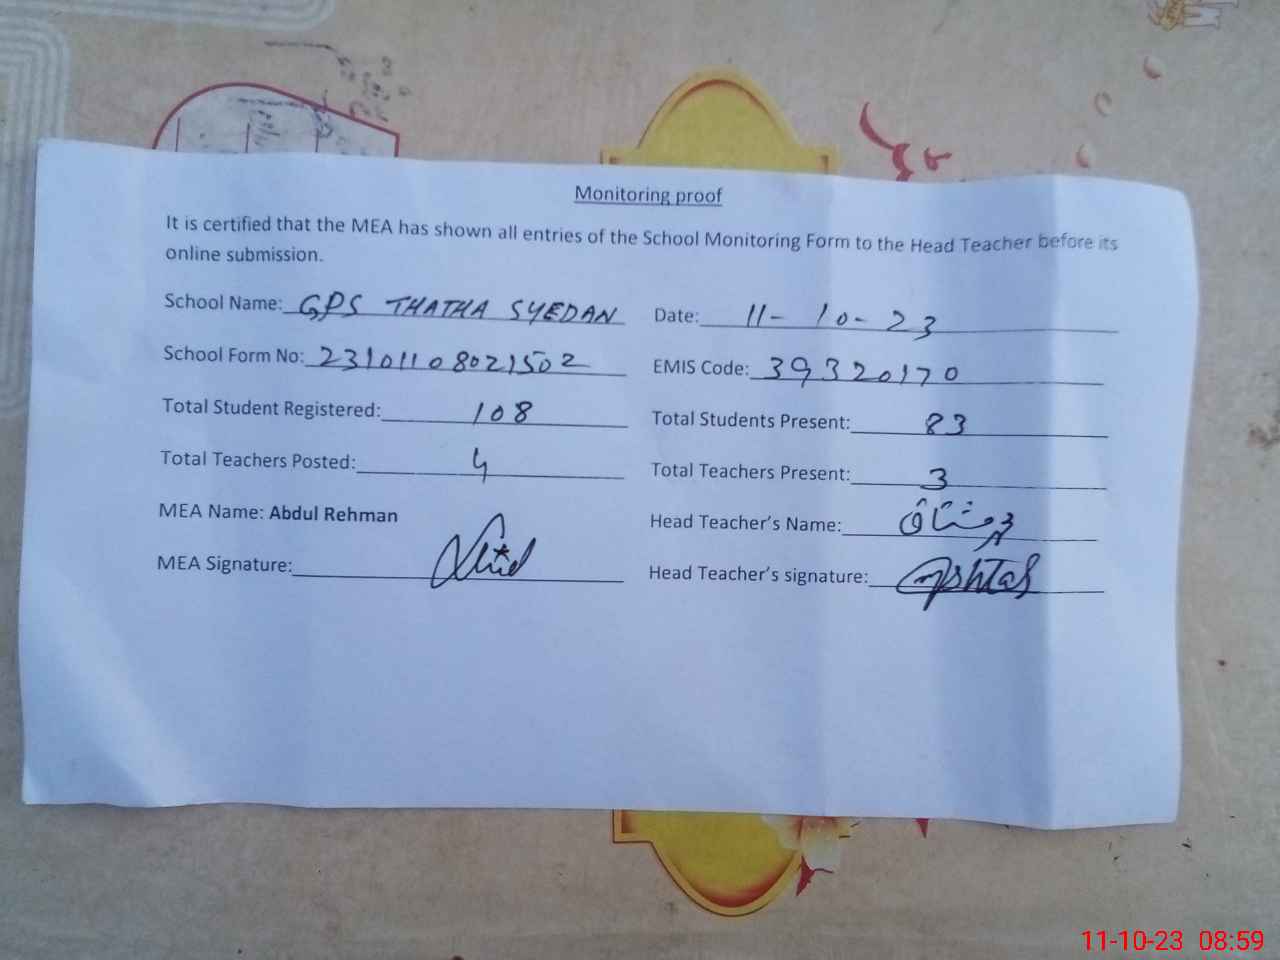 Monitoring proof
It is certified that the MEA has shown all entries of the School Monitoring Form to the Head Teacher before its
online submission.
School Name: GPS THATHA SYEDAN Date: 11-10-23
School Form No: 23101108021502 EMIS Code: 39320170
Total Student Registered: 108 Total Students Present: 83
Total Teachers Posted: 4 Total Teachers Present: 3
MEA Name: Abdul Rehman Head Teacher's Name: محمد مشتاق
MEA Signature: Head Teacher's signature: Mushtaq
11-10-23 08:59